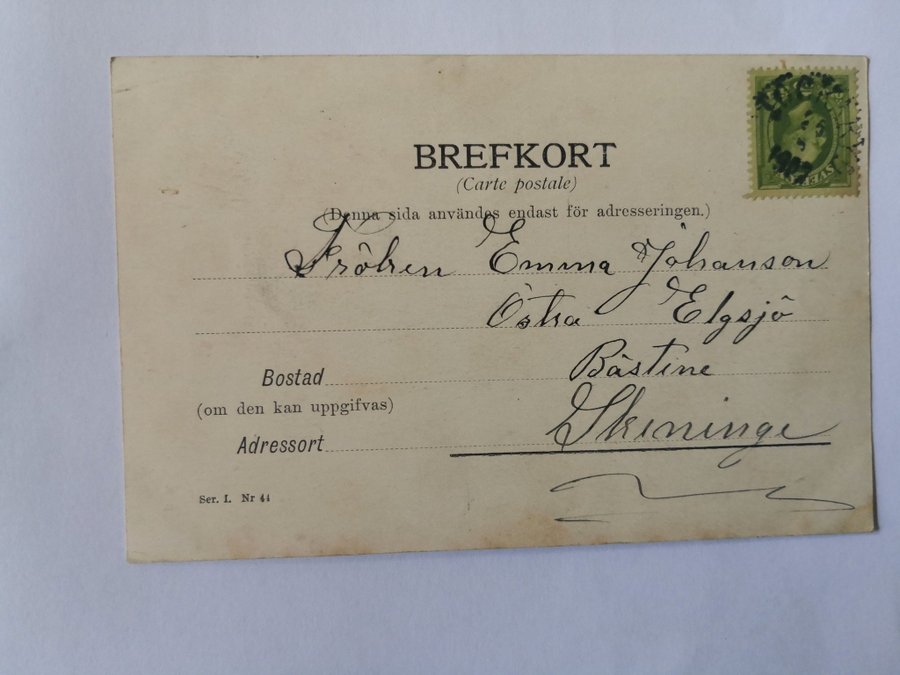 BREFKORT
(Carte postale)
(Denna sida användes endast för adresseringen.)
Fröken Emma Johanson
Östra Elgsjö
Bostad Båstine
(om den kan uppgifvas)
Adressort Skeninge
Ser. I. Nr 44